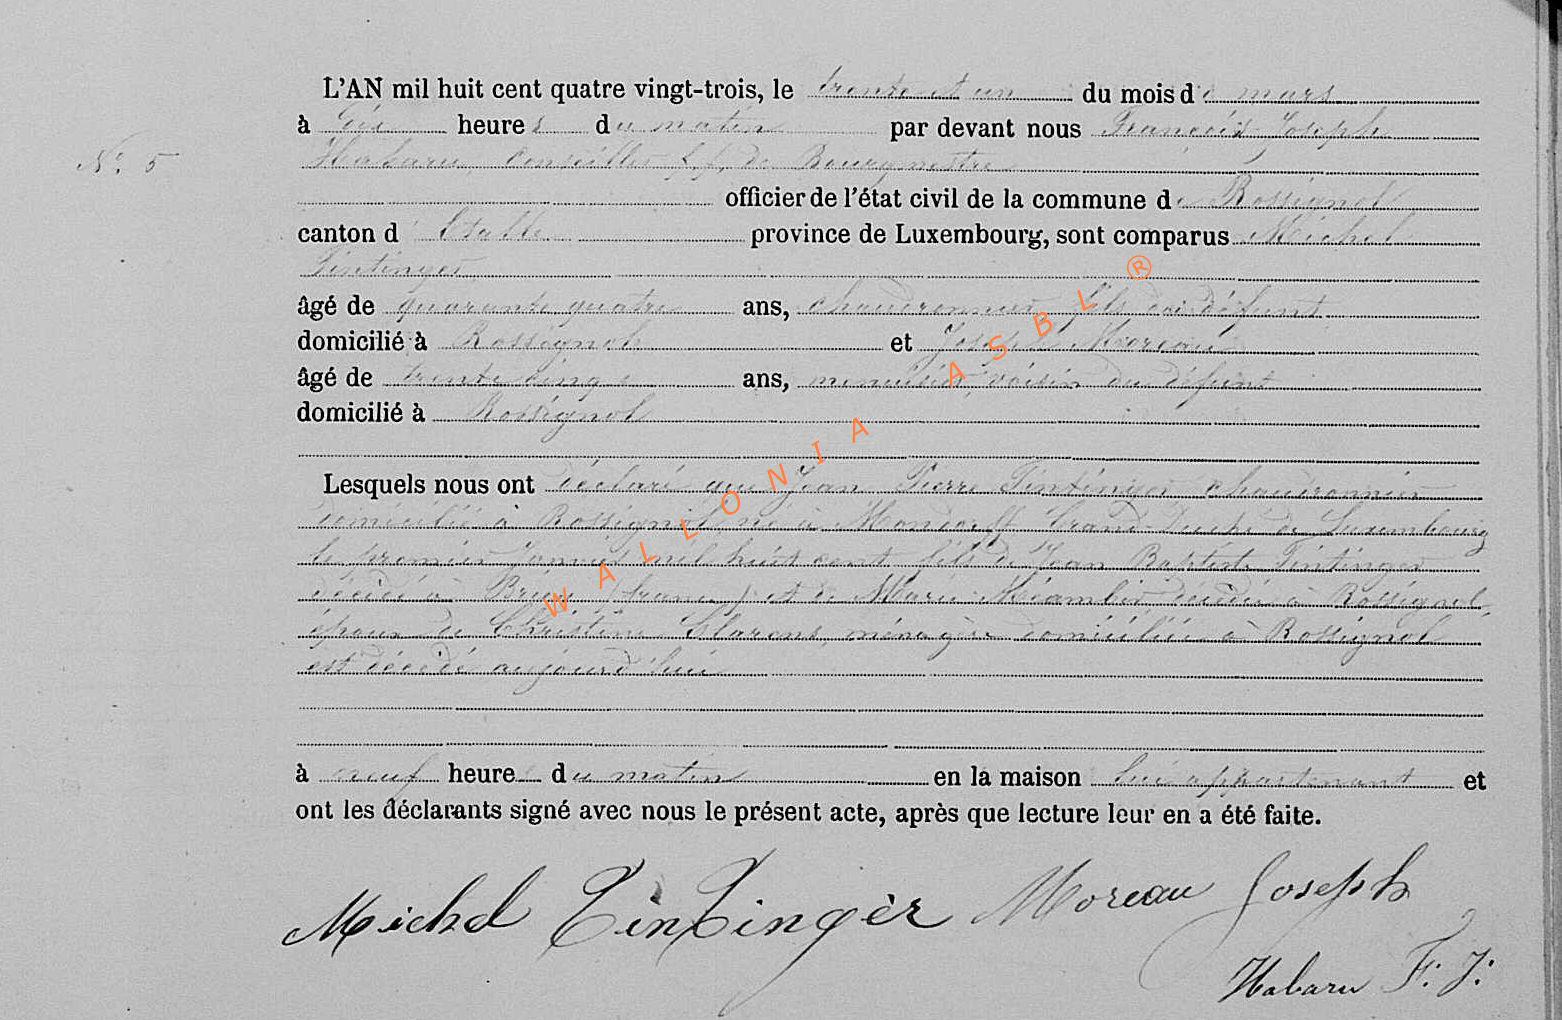 L'AN mil huit cent quatre vingt-trois, le trente et un du mois de mars
à dix heures du matin par devant nous François Joseph
N° 5
Habaru, Conseiller f. f. de Bourgmestre
officier de l'état civil de la commune de Rossignol
canton d'Etalle province de Luxembourg, sont comparus Michel
Tintinger
âgé de quarante quatre ans, chaudronnier, fils du défunt
domicilié à Rossignol et Joseph Moreau
âgé de trente cinq ans, menuisier, voisin du défunt
domicilié à Rossignol
Lesquels nous ont déclaré que Jean Pierre Tintinger chaudronnier
domicilié à Rossignol né à Mondorff Grand-Duché de Luxembourg
le premier janvier mil huit cent fils de Jean Baptiste Tintinger
décédé à (france) et de Marie décédée à Rossignol,
époux de Christine Clarens, ménagère domiciliée à Rossignol
est décédé aujourd'hui
à neuf heures du matin en la maison lui appartenant et
ont les déclarants signé avec nous le présent acte, après que lecture leur en a été faite.
Michel Tintingèr Moreau Joseph
Habaru F. J.
WALLONIA ASBL ®